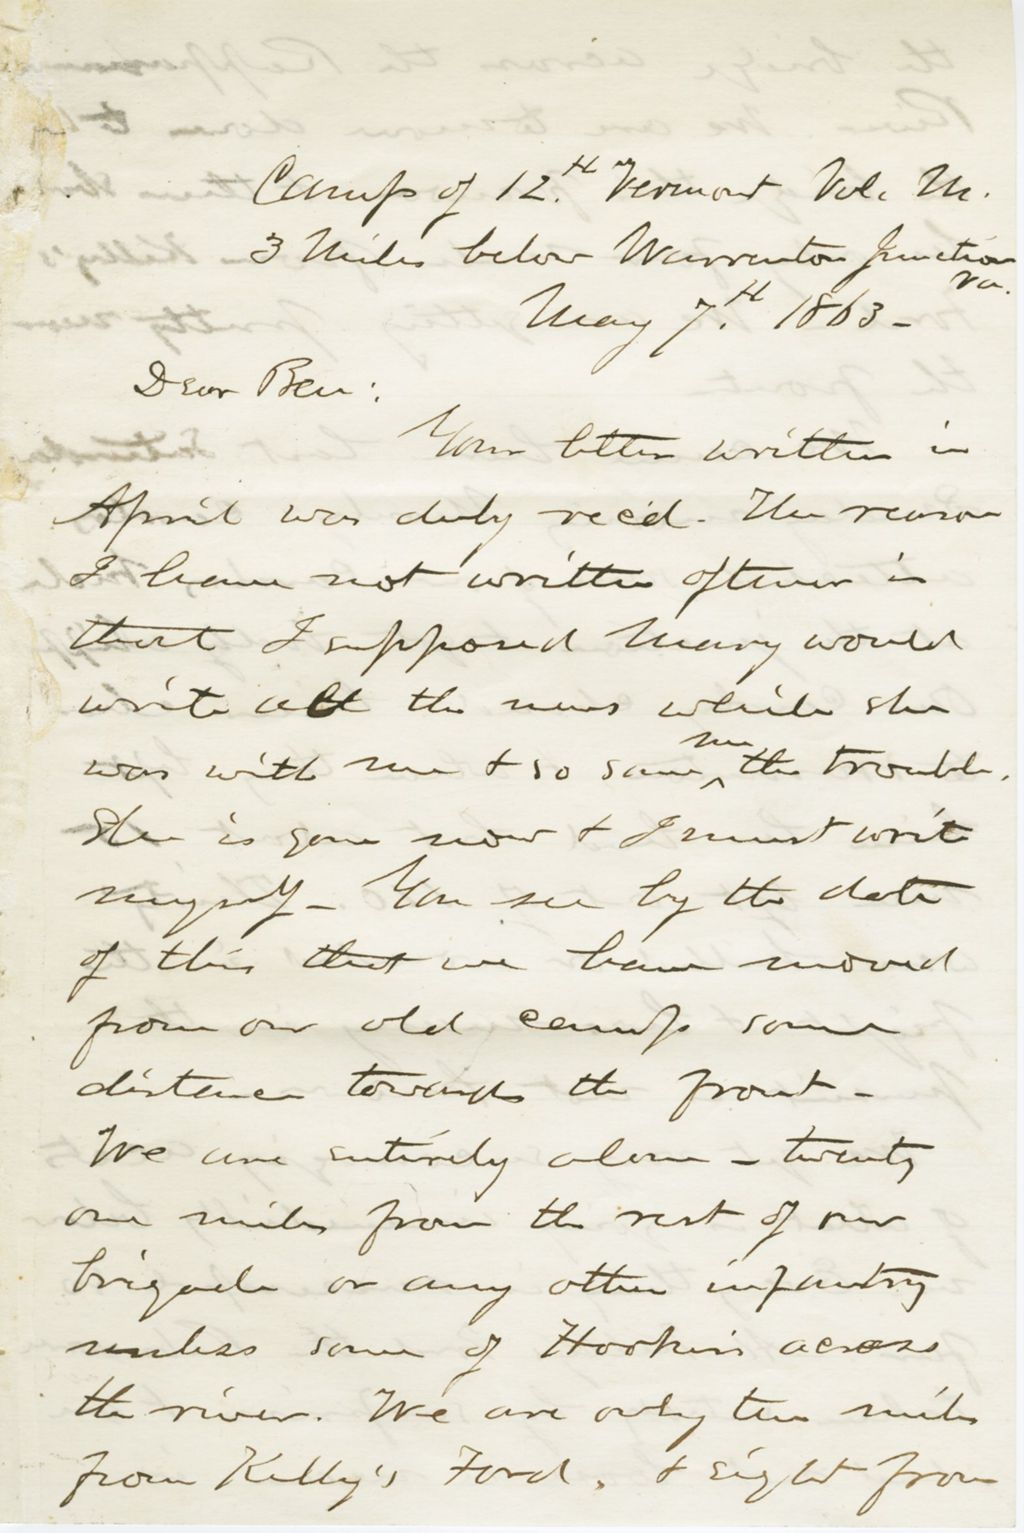 Camp of 12th Vermont Vol. M.
3 Miles below Warrenton Junction
Va.
May 7th 1863 -
Dear Ben:
Your letter written in
April was duly rec'd. The reason
I have not written oftener is
that I supposed Mary would
write all the news while she
was with me & so save me the trouble.
She is gone now & I must write
myself - You see by the date
of this that we have moved
from our old camp some
distance towards the front -
We are entirely alone - twenty
one miles from the rest of our
brigade or any other infantry
unless some of Hooker's across
the river. We are only ten miles
from Kelly's Ford, & eight from